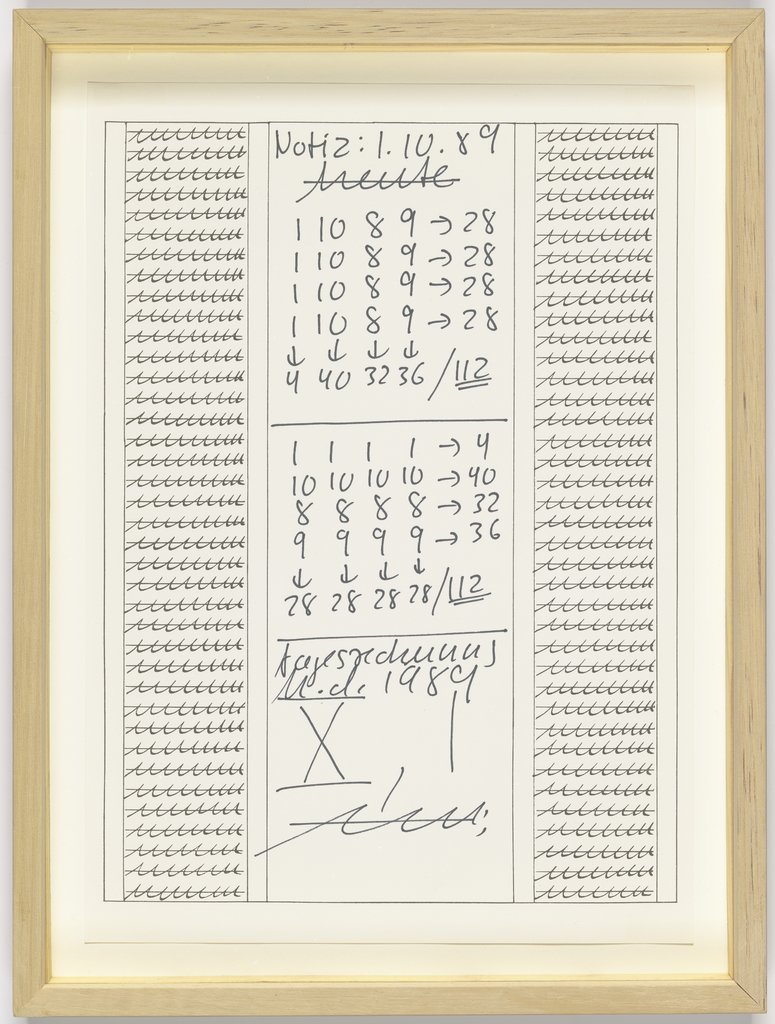 Notiz: 1.10.89
heute
1 10 8 9 → 28
1 10 8 9 → 28
1 10 8 9 → 28
1 10 8 9 → 28
↓ ↓ ↓ ↓
4 40 32 36 / 112
1 1 1 1 → 4
10 10 10 10 → 40
8 8 8 8 → 32
9 9 9 9 → 36
↓ ↓ ↓ ↓
28 28 28 28 / 112
Tagesrechnung
1989
X I